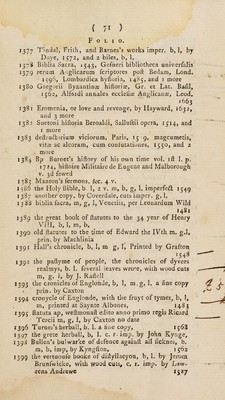 ( 71 )
FOLIO.
1377 Tindal, Frith, and Barnes's works imper. b, l, by
Daye, 1572, and 2 bibles, b, l.
1378 Biblia Sacra, 1543, Gesneri bibliotheca universalis
1379 rerum Anglicarum scriptores post Bedam, Lond.
1596, Lombardica hystoria, 1485, and 1 more
1380 Gregorii Byzantinæ historiæ, Gr. et Lat. Basil,
1562, Alfordi annales ecclesiæ Anglicanæ, Leod,
1663
1381 Eromenia, or love and revenge, by Hayward, 1632,
and 3 more
1382 Suetoni historia Beroaldi, Sallustii opera, 1514, and
1 more
1383 destructorium viciorum, Paris, 1509, magcumetis,
vita ac alcoram, cum confutationes, 1550, and 2
more
1384 Bp Burnet's history of his own time vol. 1st l. p.
1724, histoire Militaire de Eugene and Malborough
v. 3d sewed
1385 Manton's sermons, &c. 4 v.
1386 the Holy Bible, b. l, 2 v. m, b, g, l, imperfect 1549
1387 another copy, by Coverdale, cuts imper. g, l.
1388 biblia sacra, m, g, l, Venetiis, per Leonardum Wild
1481
1389 the great book of statutes to the 34 year of Henry
VIII, b, l, m, b,
1390 old statutes to the time of Edward the IVth m. g.l,
prin. by Machlinia
1391 Hall's chronicle, b, l, m g, l, Printed by Grafton
1548
1392 the pastyme of people, the chronicles of dyvers
realmys, b. l. several leaves wrote, with wood cuts
m, g. l, by J. Rastell
1393 the cronicles of Englonde, b, l, m. g, l. a fine copy
prin. by Caxton
1394 cronycle of Englonde, with the fruyt of tymes, b, l,
m, printed at Saynte Albones, 1483
1395 statuta ap, westmonasl edito anno primo regis Ricard
Tercii m, g, l, by Caxton no date
1396 Turner's herball, b. l. a fine copy, 1568
1397 the grete herball, b, l. c. r. imp. by John Kynge,
1398 Bullen's bulwarke of defence against all sicknes, b,
m, b, imp, by Kyngston, 1562
1399 the vertuouse booke of distyllacyon, b, l, by Jerom
Brunswicke, with wood cuts, c. r. imp. by Law-
rens Andrewe 1527